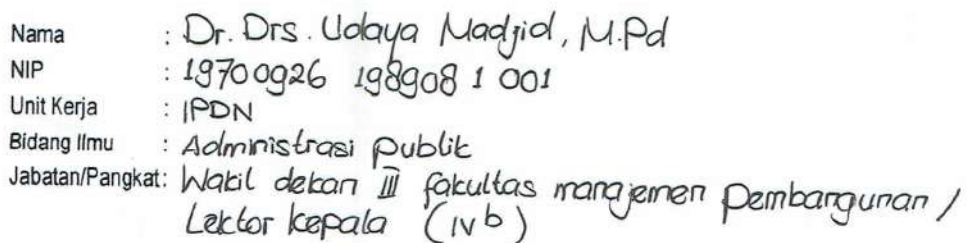 Nama : Dr. Drs. Udaya Madjid, M.Pd
NIP : 19700926 198908 1 001
Unit Kerja : IPDN
Bidang Ilmu : Administrasi Publik
Jabatan/Pangkat: Wakil dekan III fakultas manajemen Pembangunan /
Lektor kepala (IV b)